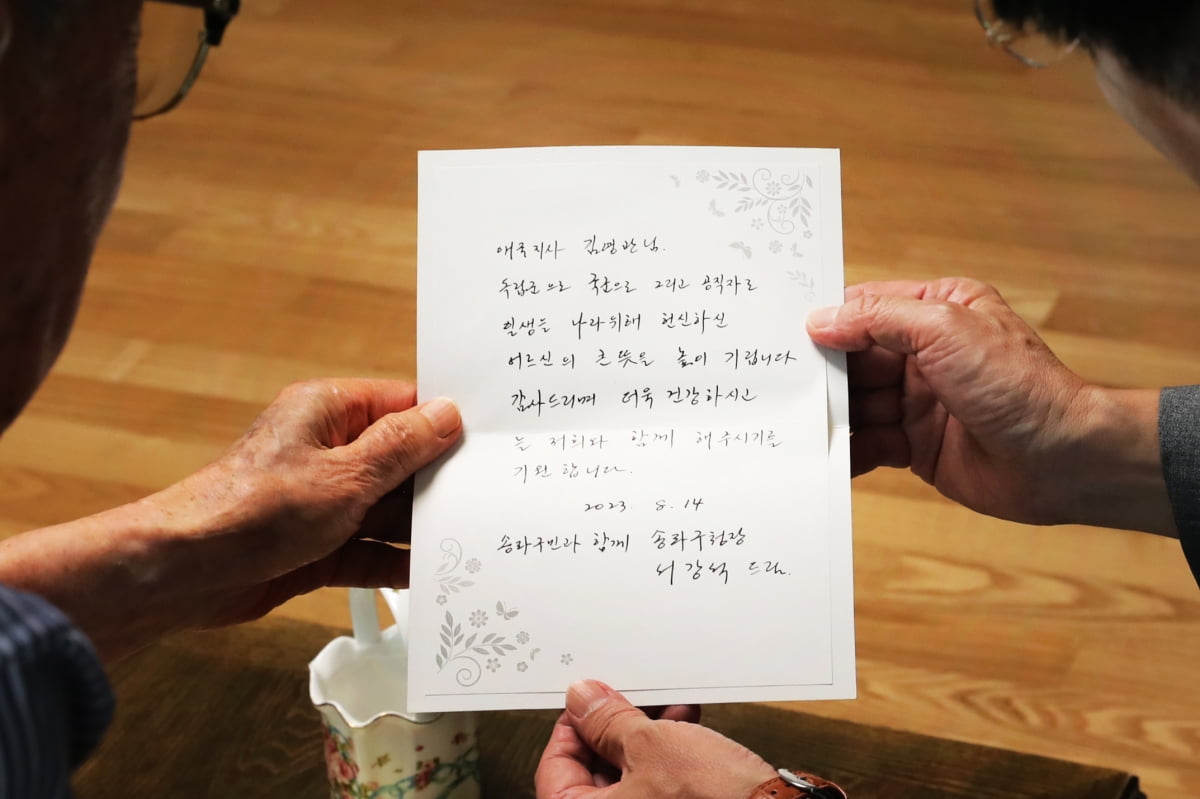 애국지사 김영관님.
독립군으로 국군으로 그리고 공직자로
일생을 나라위해 헌신하신
어르신의 큰 뜻을 높이 기립니다
감사드리며 더욱 건강하시고
늘 저희와 함께 해주시기를
기원합니다.
2023. 8. 14
송파구민과 함께 송파구청장
서강석 드림.